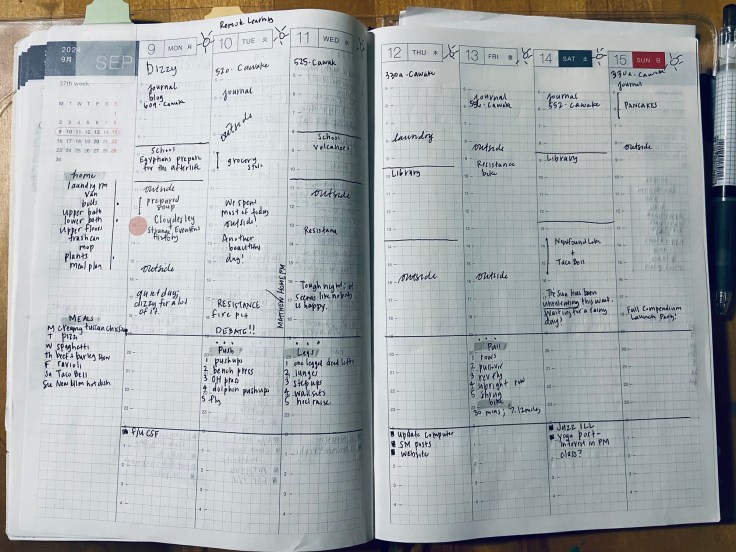 Remote Learning
2024
9月
SEP
37th week
M T W T F S S
9 10 11 12 13 14 15
30
home
laundry rm
van
bath
upper bath
lower bath
upper floors
trash can
mop
plants
meal plan
MEALS
M creamy tuscan chicken
T pizza
W spaghetti
Th beef + barley stew
F ravioli
Sa Taco Bell
Su New Blim hotdish
9 MON 月
Dizzy
journal
blog
609 - Cawake
School
Egyptians prepare
for the afterlife
outside
prepared
soup
Cloudesley
+
History
outside
quiet day;
dizzy for a lot
of it.
F/U CSF
10 TUE 火
520 - Cawake
journal
outside
grocery
We spent
most of today
outside!
Another
beautiful
day!
RESISTANCE
fire pit
DEBATE!!
Push
1 pushups
2 bench press
3 OH press
4 dolphin pushups
5 fly
11 WED 水
525 - Cawake
School
volcanoes
outside
Resistance
MATTHEW HOME PM
Tough night; it
seems like nobody
is happy.
Legs
1 one legged dead lifts
2 lunges
3 step ups
4 wall sits
5 heel raise
12 THU 木
330a - Cawake
laundry
Library
outside
update computer
SM posts
website
13 FRI 金
journal
530 - Cawake
outside
Resistance
bike
outside
Pull
1 rows
2 pullover
3 rev fly
4 upright row
5 shrug
bike
30 mins, 7.12 miles
14 SAT 土
journal
552 - Cawake
Library
Newfound Lake
+
Taco Bell
The sun has been
unrelenting this week.
Waiting for a rainy
day!
Jazz ILL
yoga post-
interest in PM
class?
15 SUN 日
330a - Cawake
journal
PANCAKES
outside
Fall Compendium
Launch Party!